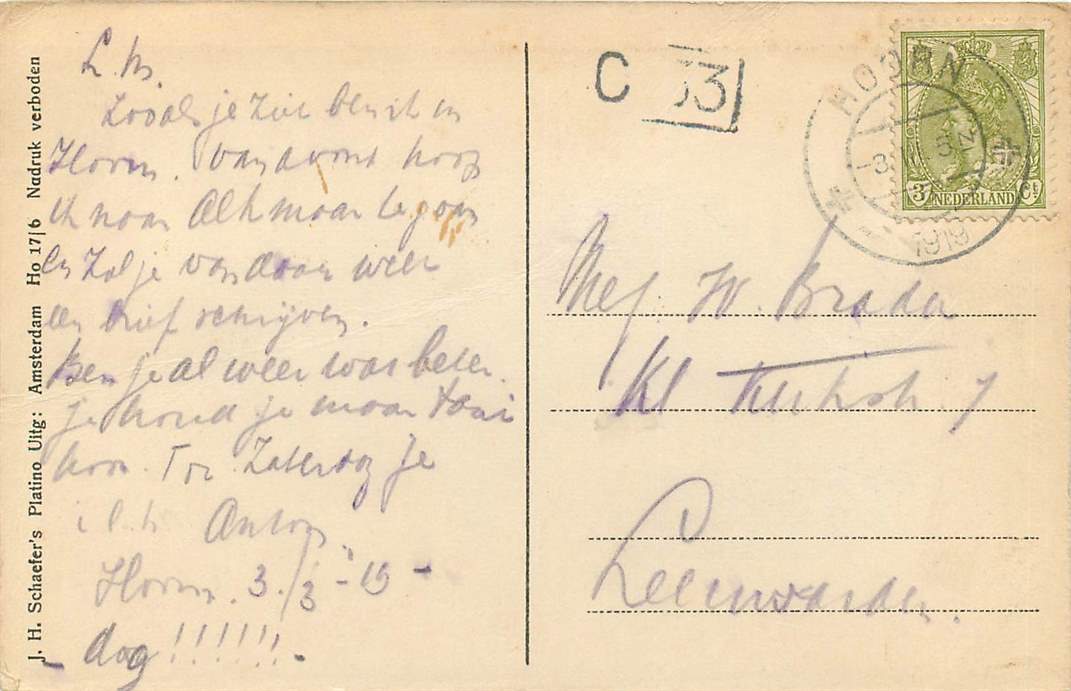 J. H. Schaefer's Platino Uitg: Amsterdam Ho 17/6 Nadruk verboden
L.
Zooals je ziet ben ik in
Hoorn. Vanavond hoop
ik naar Alkmaar te gaan
en zal je vandaar weer
een brief schrijven.
Ben je al weer wat beter.
Je houd je maar taai
hoor. Tot Zaterdag je
Anton.
Hoorn. 3/3-19-
- dag!!!!!!.
C 33
HOORN
3 5-12
1919
3 NEDERLAND Ct
Mej. W. Brada
Kl Kerkstr 7
Leeuwarden.